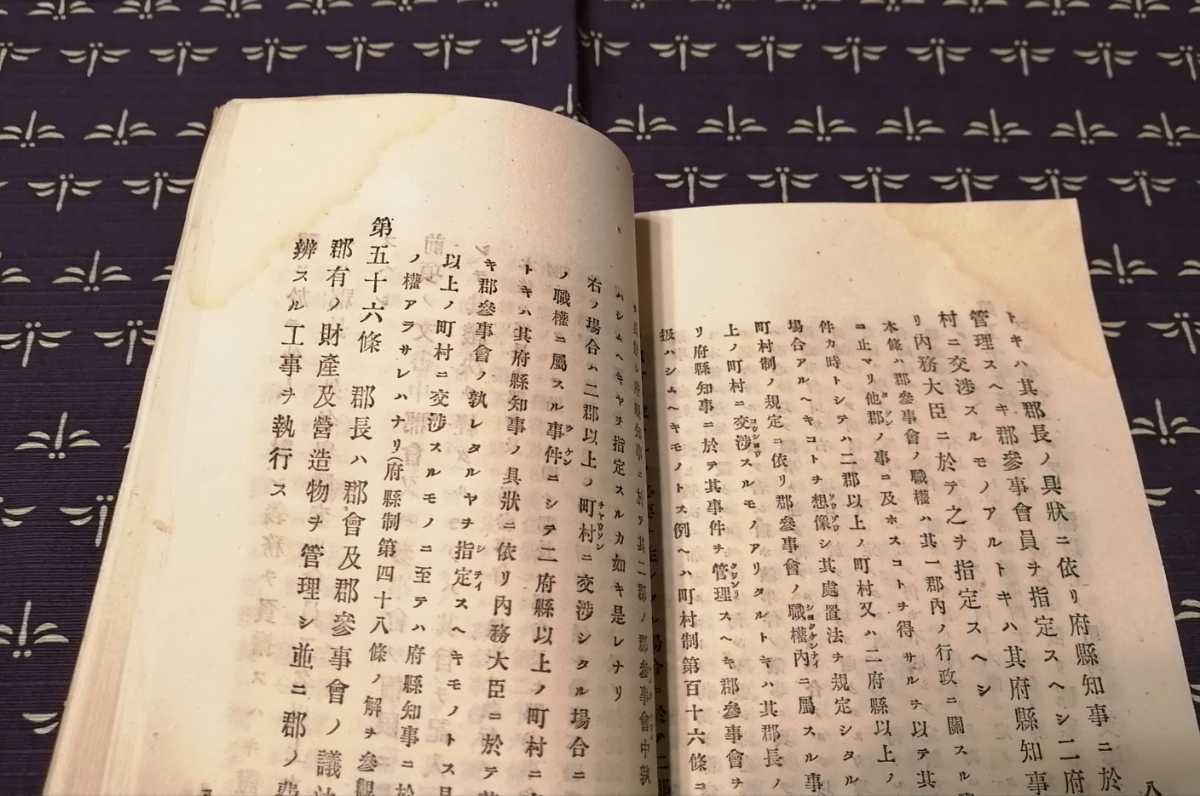 トキハ其郡長ノ具狀ニ依リ府縣知事ニ於
管理スヘキ郡參事會員ヲ指定スヘシ二府
村ニ交渉スルモノアルトキハ其府縣知事
リ內務大臣ニ於テ之ヲ指定スヘシ
本條ハ郡參事會ノ職權ハ其一郡內ノ行政ニ關スル
ニ止マリ他郡ノ事ニ及ホスコトヲ得サルヲ以テ其
件カ時トシテハ二郡以上ノ町村又ハ二府縣以上ノ
場合アルヘキコトヲ想像シ其處置法ヲ規定シタル
町村制ノ規定ニ依リ郡參事會ノ職權內ニ屬スル事
上ノ町村ニ交渉スルモノアリタルトキハ其郡長ノ
リ府縣知事ニ於テ其事件ヲ管理スヘキ郡參事會ヲ
扱ハシムヘキモノトス例ヘハ町村制第百十六條ニ
ハシムヘキヤヲ指定スルカ如キ是レナリ
右ノ場合ハ二郡以上ノ町村ニ交渉シタル場合ニ
ノ職權ニ屬スル事件ニシテ二府縣以上ノ町村ニ
トキハ其府縣知事ノ具狀ニ依リ內務大臣ニ於テ
キ郡參事會ノ孰レタルヤヲ指定スヘキモノトス
以上ノ町村ニ交渉スルモノニ至テハ府縣知事ニ
ノ權アラサレハナリ(府縣制第四十八條ノ解ヲ參
第五十六條 郡長ハ郡會及郡參事會ノ議
郡有ノ財產及營造物ヲ管理シ並ニ郡ノ費
辨スル工事ヲ執行ス